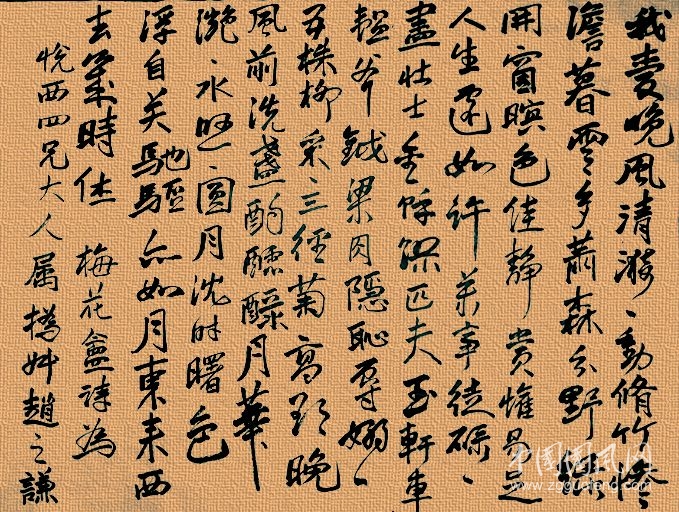 我愛晚風清漪、動脩竹慘
澹暮雲多蕭森分野
開窗暝色佳靜貴惟易足
人生還如許萬事徒碌、
盡壯士無餘匹夫玉軒車
韞斧鉞粱肉隱恥辱嫋、
五株柳采、三徑菊高歌晚
風前洗盞酌醽醁月華
灧、水圓月沈時曙色
浮自笑馳驅亦如月東來西
去幾時休 梅花盦詩為
悅西四兄大人屬撝叔趙之謙
中国国风网
www.zgguofeng.com